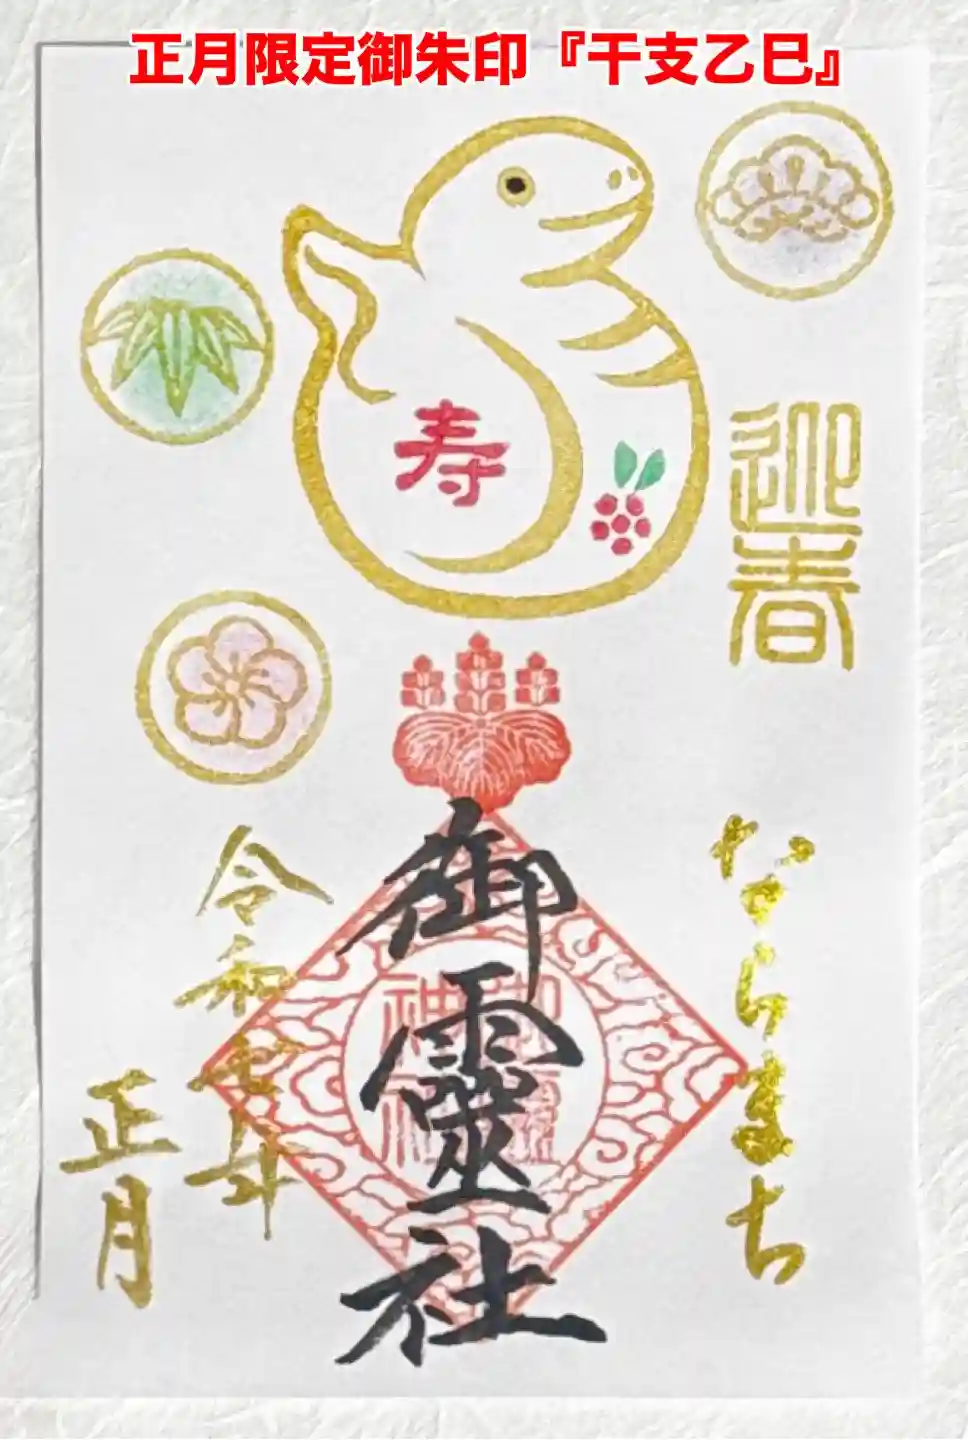 正月限定御朱印『干支乙巳』
迎春
寿
ならまち
御靈社
令和七年
正月